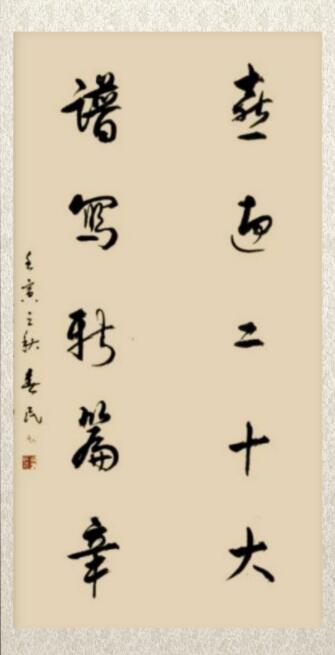 喜迎二十大
譜寫新篇章
壬寅之秋春民